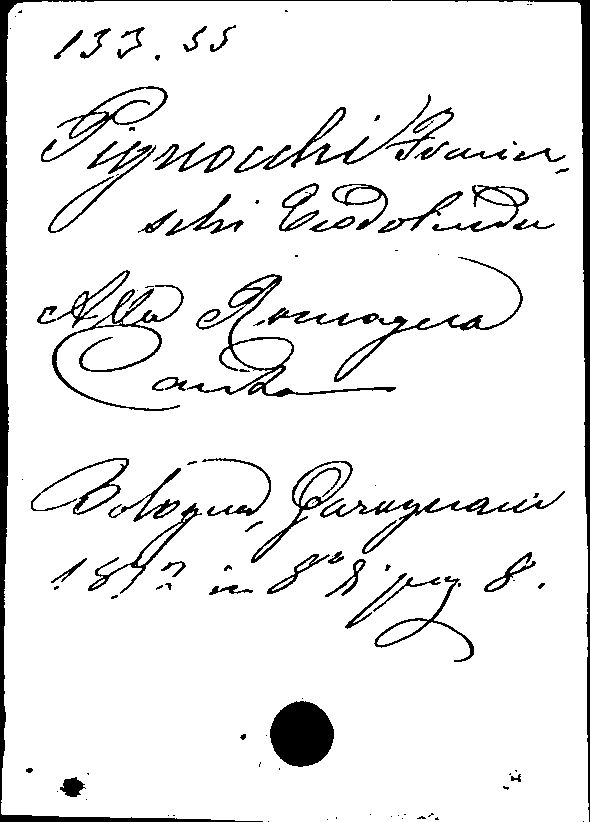 133.55
Pignocchi Frances-
chi Teodolinda
Alla Romagna
Canto
Bologna, Garagnani
in 8° di pag. 8.